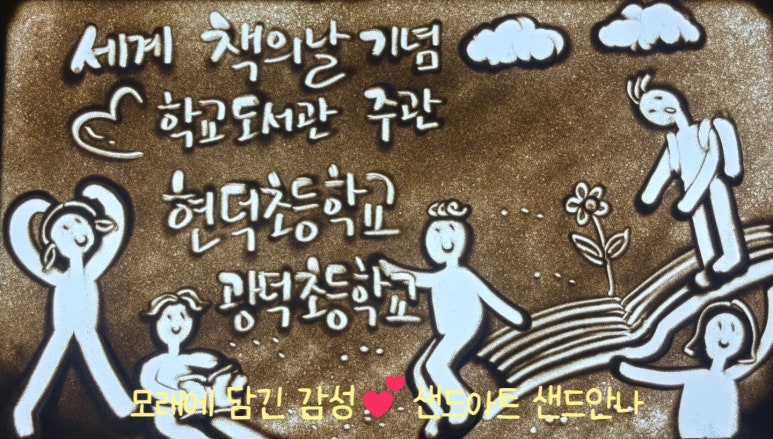 세계 책의날 기념
학교도서관 주관
현덕초등학교
광덕초등학교
모래에 담긴 감성💕 샌드아트 샌드안나